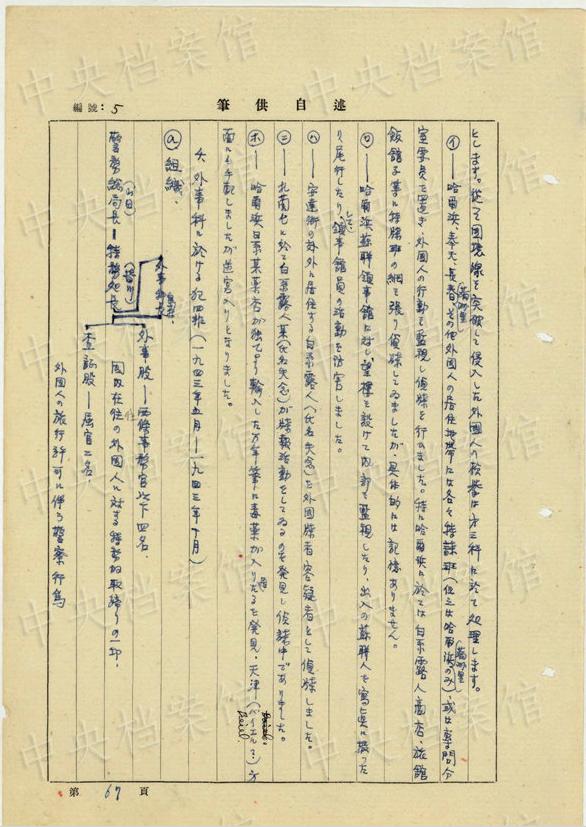 編號：5
筆供自述
とします。從って国境線を突破して侵入した外國人の検挙は第三科に於て処理します。
イ—哈爾浜、奉天、長春、その他外國人の居住地帯には各々特諜班(位立は哈爾浜のみ)、或は專問分
室要員を置き、外國人の行動を監視し偵諜を行ひました。特に哈爾浜に於ては白系露人商店、旅館
飯館子等に特諜班の網を張り偵諜してゐましたが、具体的には記憶ありません。
ロ—哈爾浜蘇聯領事館に対し、望樓を設けて内部を監視したり、出入の蘇聯人を寫眞に撮った
り尾行したりして、領事館員の活動を妨害しました。
ハ—安達街の郊外に居住する白系露人(氏名失念)を外國諜者容疑者として偵諜しました。
ニ—札蘭屯に於て白系露人某(氏名失念)が諜報活動をしてゐるのを発見し偵諜中でありました。
ホ—哈爾浜日系某薬店が独乙より輸入した万年筆に毒薬が入りたるを発見、天津(バイエル？)方
面にも手配しましたが迷宮入りとなりました。
六 外事科に於ける犯罪(一九四三年五月——一九四三年十月)
a 組織、
警務總局長—特務処長
(山田)
(皆川)
外事科長
外事股—西條事務官以下四名。
国内在住の外國人に対する特務的取締りの一部。
査証股—属官二名。
外國人の旅行許可に伴ふ警察行為
第 67 頁
中央档案馆